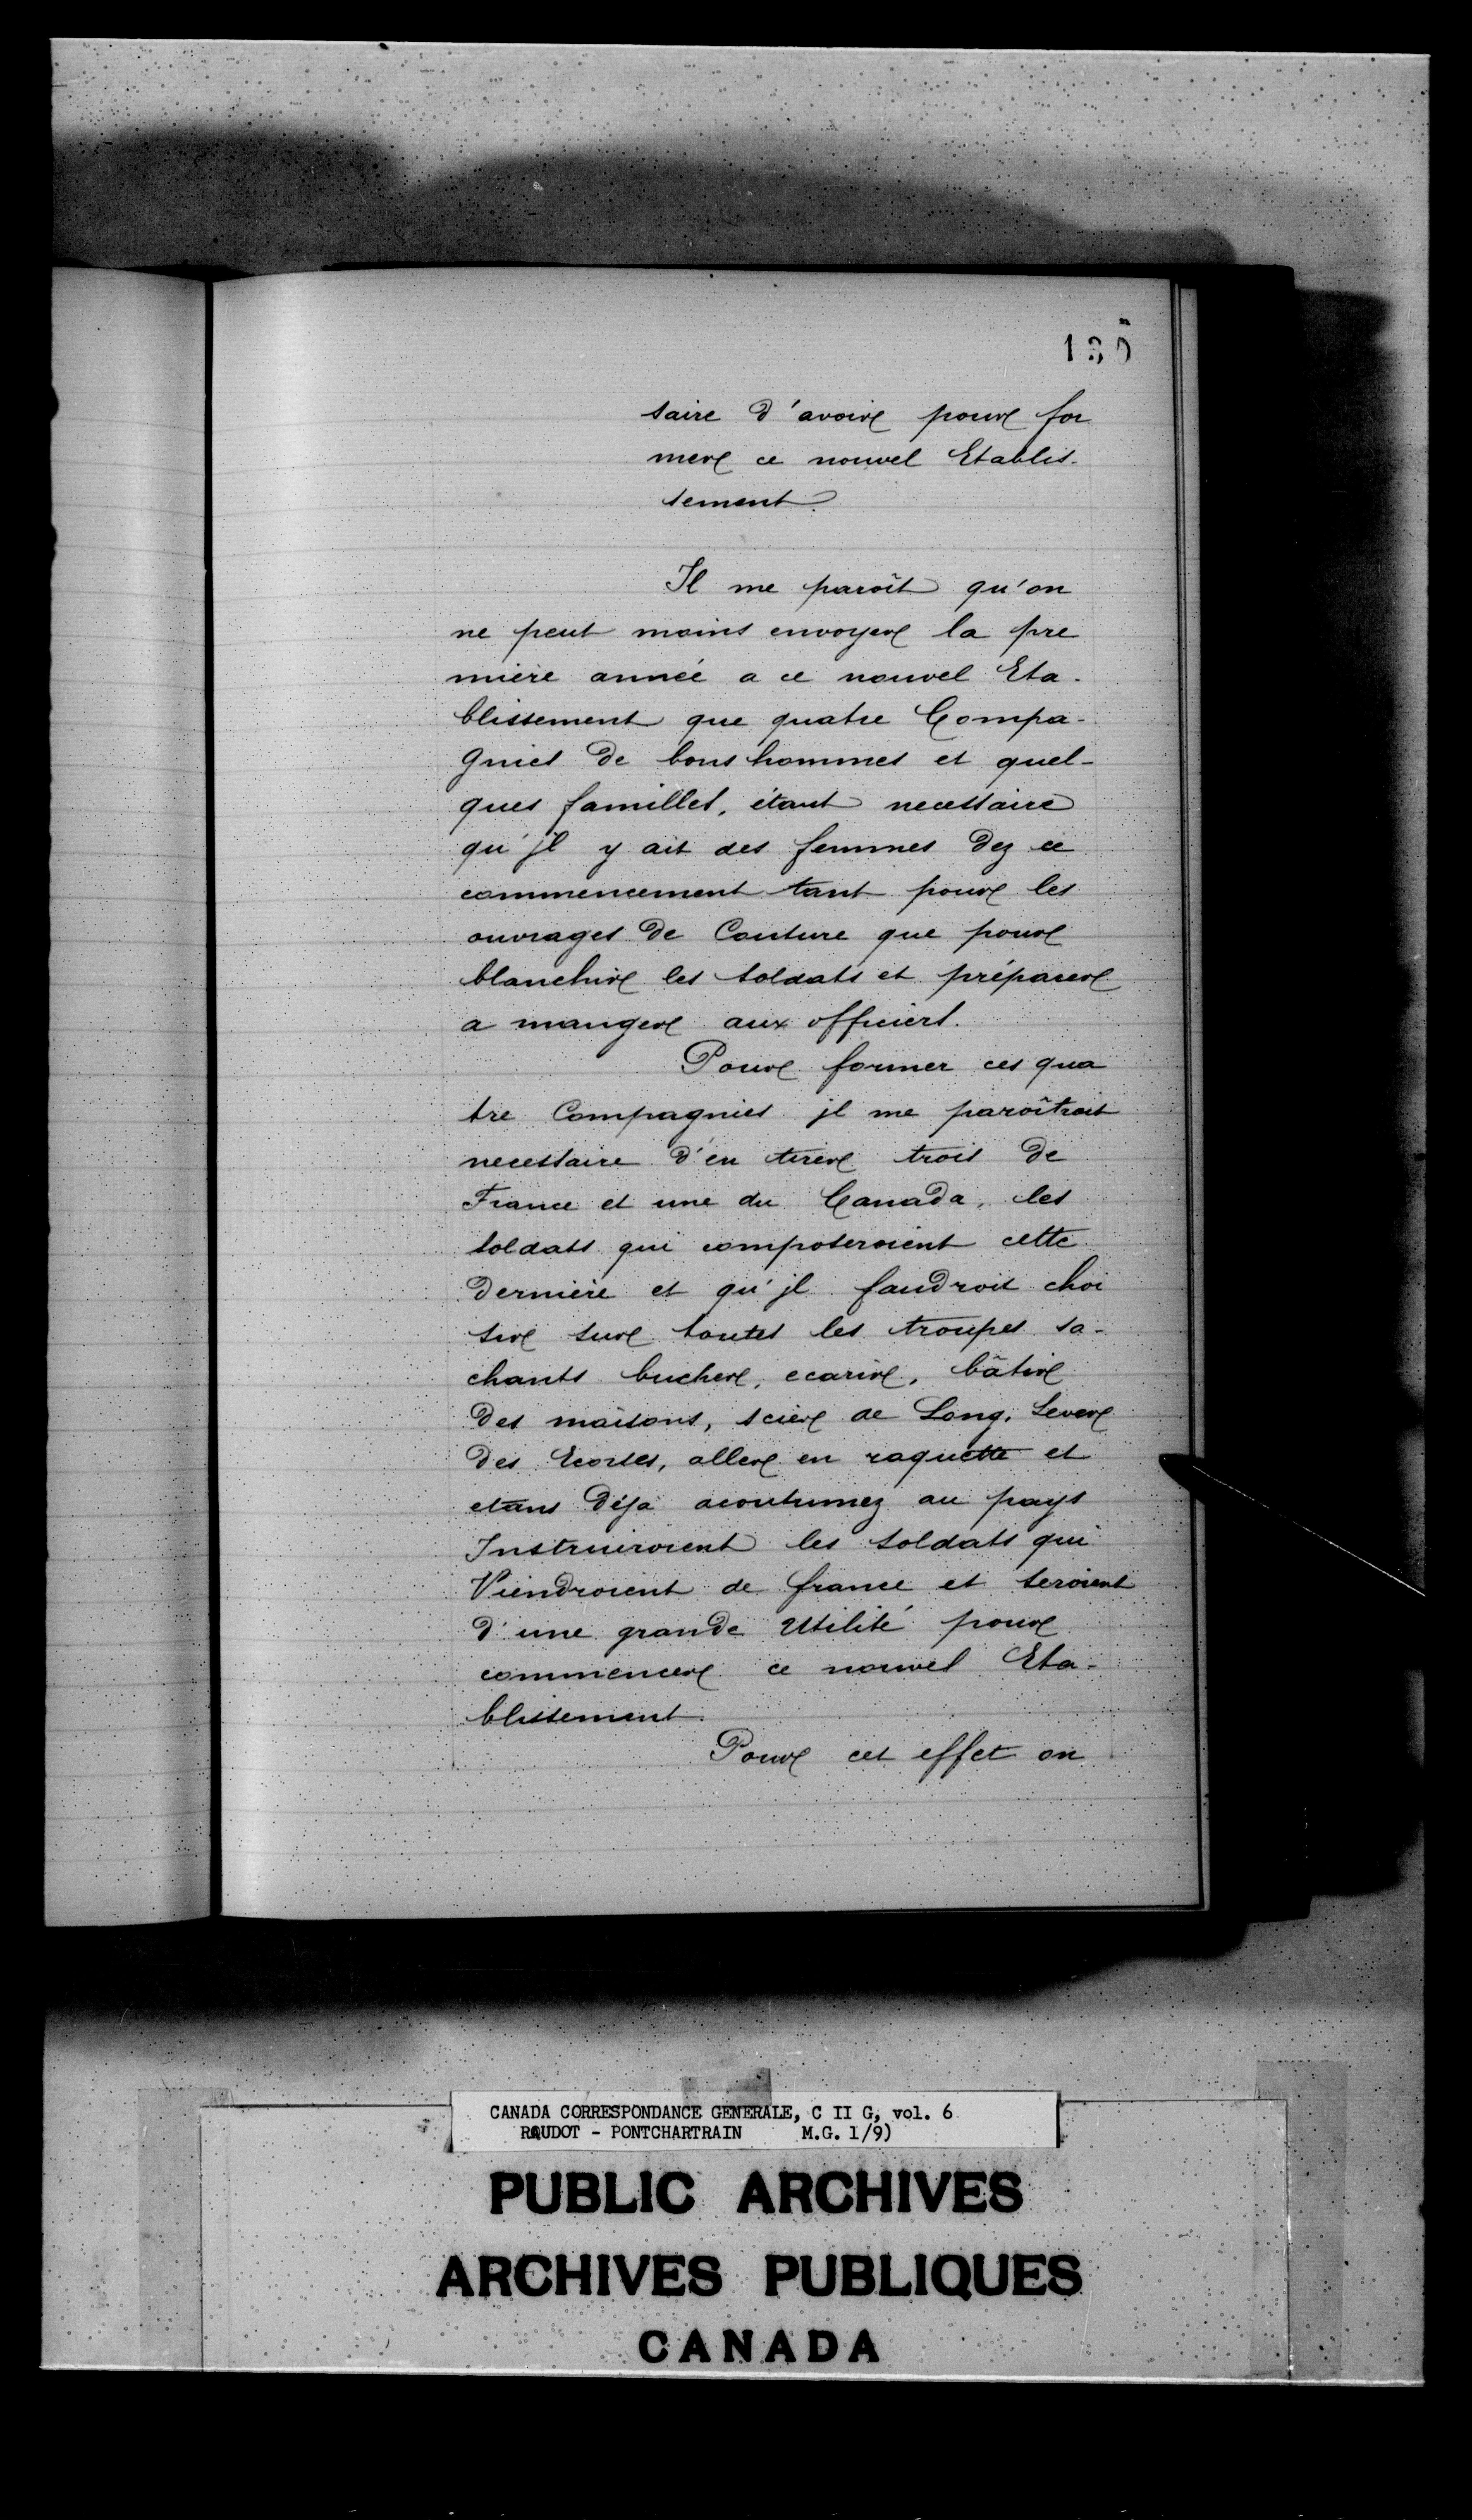 135
saire d'avoir pour for
mer ce nouvel Etablis-
sement.
Il me paroît qu'on
ne peut moins envoyer la pre
mière année a ce nouvel Eta-
blissement que quatre Compa-
gnies de bons hommes et quel-
ques familles, étant necessaire
qu'jl y ait des femmes dez ce
commencement tant pour les
ouvrages de Couture que pour
blanchir les soldats et préparer
a manger aux officiers.
Pour former ces qua
tre Compagnies jl me paroîtroit
necessaire d'en tirer trois de
France et une du Canada, les
soldats qui composeroient cette
dernière et qu'jl faudroit choi
sir sur toutes les troupes sa-
chants bucher, ecarir, bâtir
des maisons, scier de Long, Lever
des Ecorses, aller en raquette et
etans déja acoutumez au pays
Instruiroient les soldats qui
Viendroient de france et seroient
d'une grande Utilité pour
commencer ce nouvel Eta-
blissement.
Pour cet effet on
CANADA CORRESPONDANCE GENERALE, C II G, vol. 6
RAUDOT - PONTCHARTRAIN M.G. 1/9)
PUBLIC ARCHIVES
ARCHIVES PUBLIQUES
CANADA